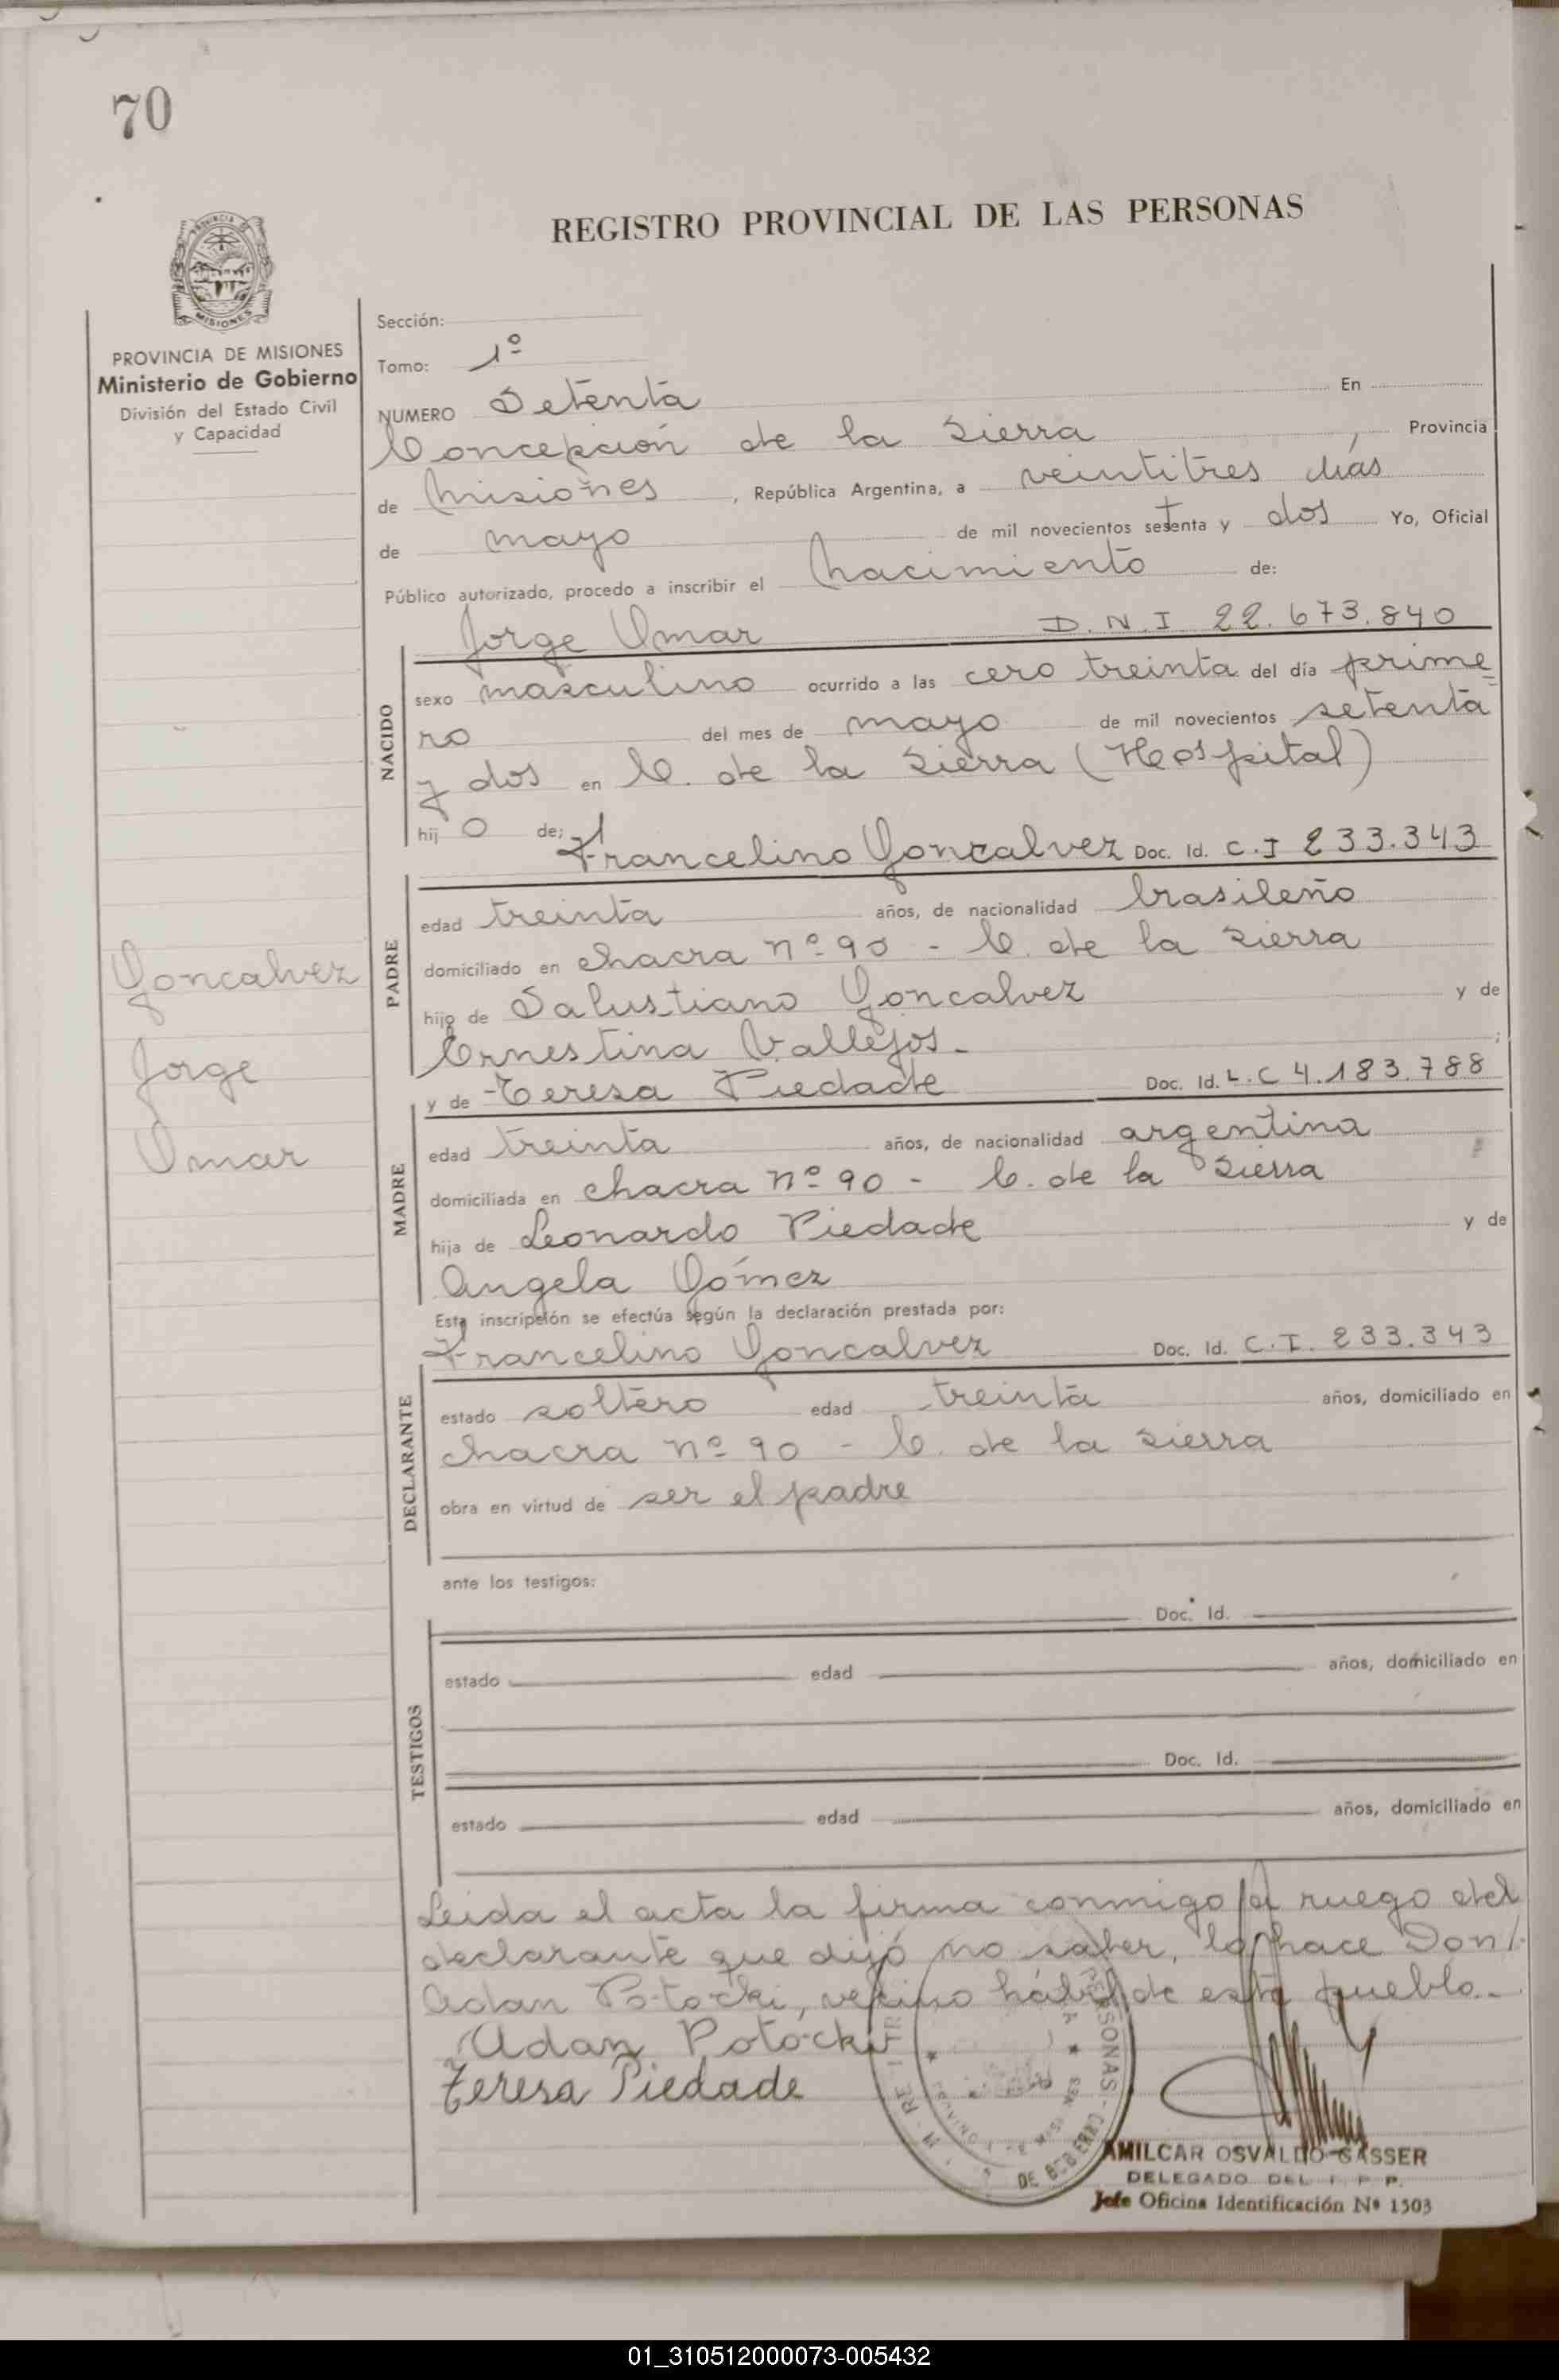 70
REGISTRO PROVINCIAL DE LAS PERSONAS
MISIONES
PROVINCIA DE MISIONES
Ministerio de Gobierno
División del Estado Civil
y Capacidad
Sección:
Tomo: 1º
NUMERO Setenta En
Concepción de la Sierra, Provincia
de Misiones, República Argentina, a veintitres días
de mayo de mil novecientos setenta y dos Yo, Oficial
Público autorizado, procedo a inscribir el nacimiento de:
Jorge Omar D.N.I 22.673.840
NACIDO
sexo masculino ocurrido a las cero treinta del día prime=
ro del mes de mayo de mil novecientos setenta
y dos en C. de la Sierra (Hospital)
hij o de:
Francelino Goncalvez Doc. Id. C.I 233.343
PADRE
edad treinta años, de nacionalidad brasileño
domiciliado en chacra nº 90 - C. de la Sierra
hijo de Salustiano Goncalvez y de
Ernestina Vallejos- ;
y de Teresa Piedade Doc. Id. L.C 4.183.788
MADRE
edad treinta años, de nacionalidad argentina
domiciliada en chacra nº 90 - C. de la Sierra
hija de Leonardo Piedade y de
Angela Gómez
Goncalvez
Jorge
Omar
Esta inscripción se efectúa según la declaración prestada por:
Francelino Goncalvez Doc. Id. C.I. 233.343
DECLARANTE
estado soltero edad treinta años, domiciliado en
chacra nº 90 - C. de la Sierra
obra en virtud de ser el padre
ante los testigos:
Doc. Id.
TESTIGOS
estado edad años, domiciliado en
Doc. Id.
estado edad años, domiciliado en
Leida el acta la firma conmigo a ruego del
declarante que dijó no saber, lo hace Don
Adan Potocki, vecino hábil de este pueblo.-
Adan Potocki
Teresa Piedade
PERSONAS
AMILCAR OSVALDO GASSER
DELEGADO DEL
Jefe Oficina Identificación Nº 1503
01_310512000073-005432